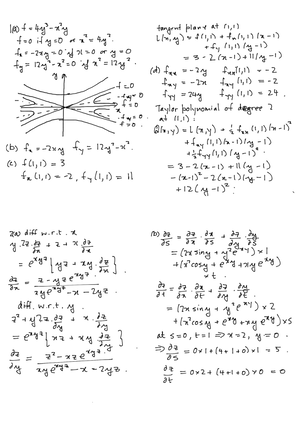 1(a) f = 4y³ - x²y
f = 0 if y = 0 or x² = 4y².
fx = -2xy = 0 if x = 0 or y = 0
fy = 12y² - x² = 0 if x² = 12y².
y
f = 0
f = 0
x
(b) fx = -2xy fy = 12y² - x².
(c) f(1,1) = 3
fx(1,1) = -2, fy(1,1) = 11
tangent plane at (1,1)
L(x,y) = f(1,1) + fx(1,1)(x-1)
+ fy(1,1)(y-1)
= 3 - 2(x-1) + 11(y-1)
(d) fxx = -2y fxx(1,1) = -2
fxy = -2x fxy(1,1) = -2
fyy = 24y fyy(1,1) = 24.
Taylor polynomial of degree 2
at (1,1):
Q(x,y) = L(x,y) + ½ fxx(1,1)(x-1)²
+ fxy(1,1)(x-1)(y-1)
+ ½ fyy(1,1)(y-1)²
= 3 - 2(x-1) + 11(y-1)
- (x-1)² - 2(x-1)(y-1)
+ 12(y-1)².
2(a) diff w.r.t. x
y.2z.∂z/∂x + z + x ∂z/∂x
= e^xyz [yz + xy ∂z/∂x]
∂z/∂x = (z - yz e^xyz)/(xy e^xyz - x - 2yz)
diff. w.r.t. y
z² + y2z ∂z/∂y + x ∂z/∂y
= e^xyz [xz + xy ∂z/∂y]
∂z/∂y = (z² - xz e^xyz)/(xy e^xyz - x - 2yz)
(b) ∂z/∂s = ∂z/∂x . ∂x/∂s + ∂z/∂y ∂y/∂s
= (2x sin y + y² e^xy) × 1
+ (x² cos y + e^xy + xy e^xy)
× t.
∂z/∂t = ∂z/∂x . ∂x/∂t + ∂z/∂y . ∂y/∂t
= (2x sin y + y² e^xy) × 2
+ (x² cos y + e^xy + xy e^xy) × s
at s = 0, t = 1 ⇒ x = 2, y = 0.
⇒ ∂z/∂s = 0×1 + (4+1+0)×1 = 5.
∂z/∂t = 0×2 + (4+1+0)×0 = 0